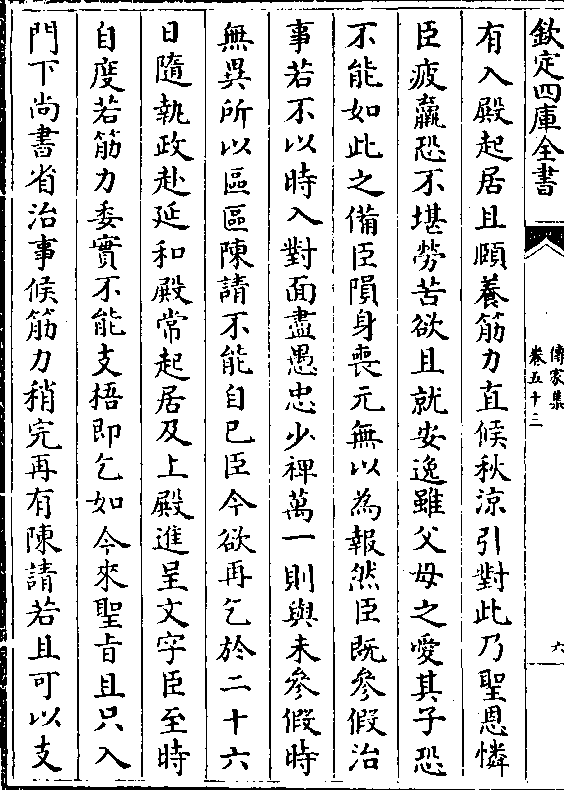 欽定四庫全書
傳家集
卷五十三
六
有入殿起居且頤養筋力直候秋涼引對此乃聖恩憐
臣疲羸恐不堪勞苦欲且就安逸雖父母之愛其子恐
不能如此之備臣隕身喪元無以為報然臣既參假治
事若不以時入對面盡愚忠少裨萬一則與未參假時
無異所以區區陳請不能自已臣今欲再乞於二十六
日隨執政赴延和殿常起居及上殿進呈文字臣至時
自度若筋力委實不能支梧即乞如今來聖旨且只入
門下尚書省治事候筋力稍完再有陳請若且可以支